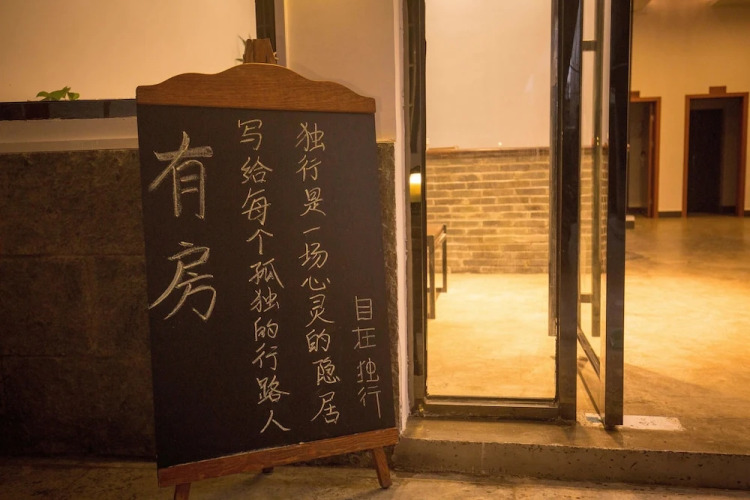 自在独行
独行是一场心灵的隐居
写给每个孤独的行路人
有房